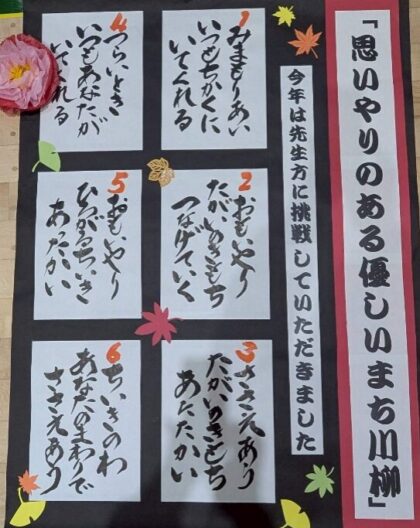 「思いやりのある優しいまち川柳」
今年は先生方に挑戦していただきました
1
みまもりあい
いつもちかくに
いてくれる
2
おもいやり
たがいのきもち
つなげていく
3
ささえあう
たがいのきもち
あたたかい
4
つらいとき
いつもあなたが
いてくれる
5
おもいやり
ひろがるちいき
あったかい
6
ちいきのわ
あなたのまわりで
ささえあう